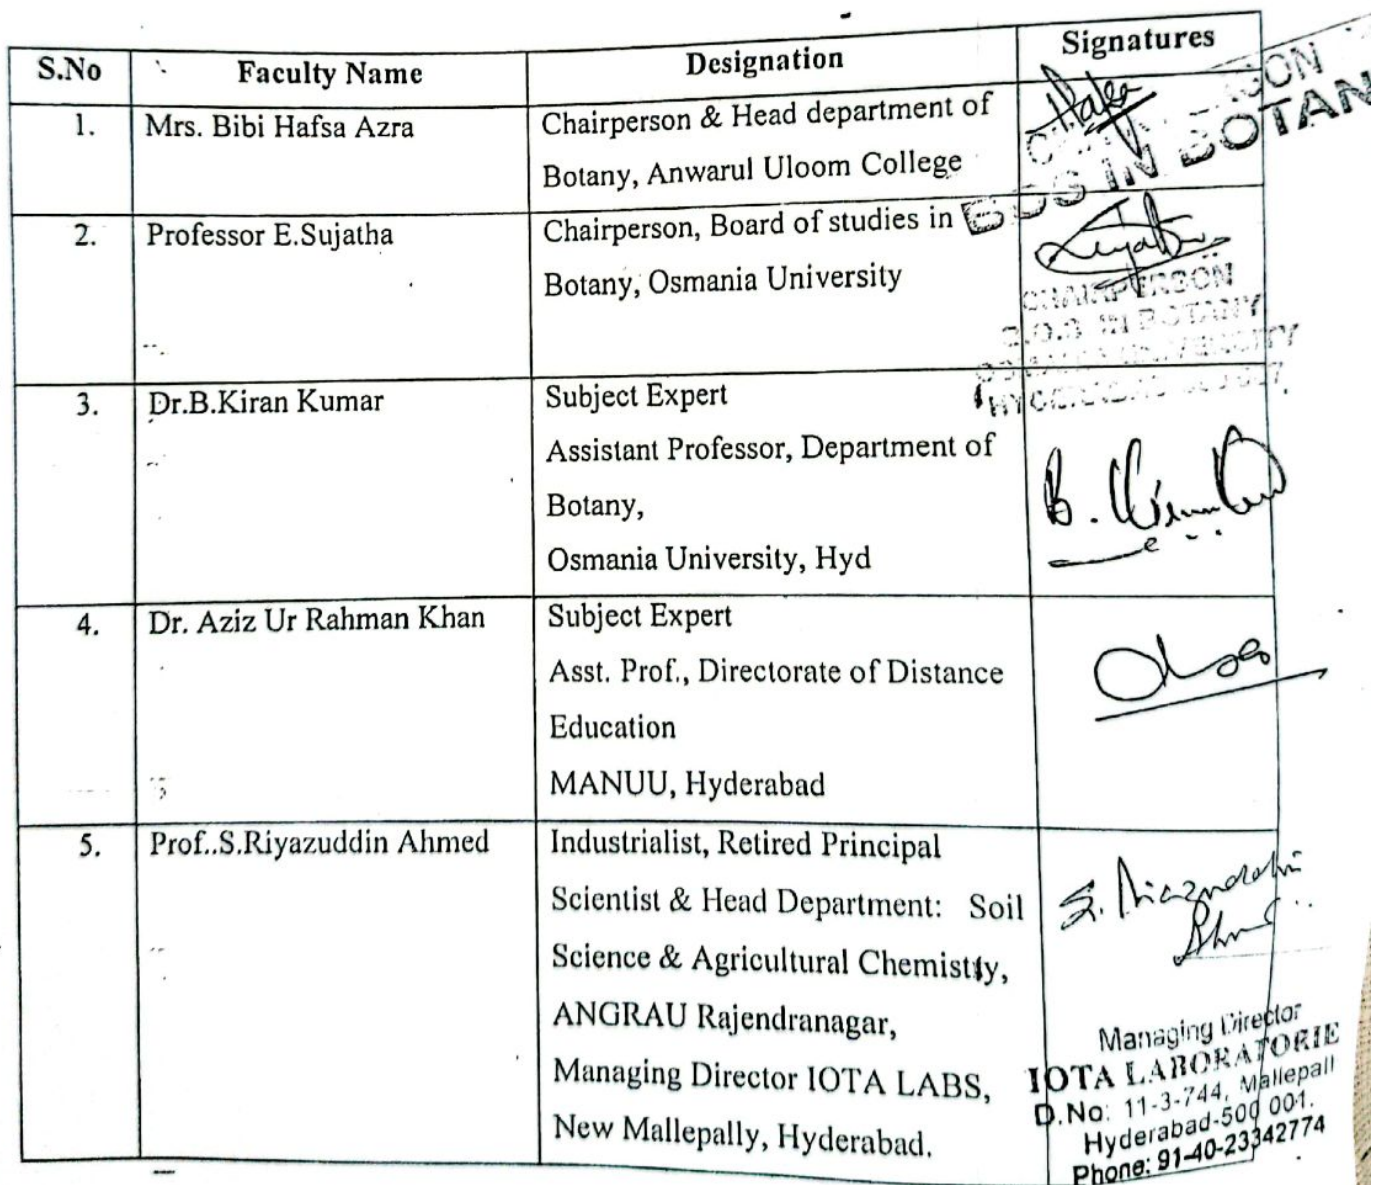 S.No Faculty Name Designation Signatures
1. Mrs. Bibi Hafsa Azra Chairperson & Head department of
Botany, Anwarul Uloom College
BOS IN BOTAN
2. Professor E.Sujatha Chairperson, Board of studies in
Botany, Osmania University
CHAIRPERSON
B.O.S IN BOTANY
UNIVERSITY
3. Dr.B.Kiran Kumar Subject Expert
Assistant Professor, Department of
Botany,
Osmania University, Hyd
B. Kiran
4. Dr. Aziz Ur Rahman Khan Subject Expert
Asst. Prof., Directorate of Distance
Education
MANUU, Hyderabad
5. Prof..S.Riyazuddin Ahmed Industrialist, Retired Principal
Scientist & Head Department: Soil
Science & Agricultural Chemistry,
ANGRAU Rajendranagar,
Managing Director IOTA LABS,
New Mallepally, Hyderabad.
Managing Director
IOTA LABORATORIE
D.No: 11-3-744, Mallepall
Hyderabad-500 001.
Phone: 91-40-23342774